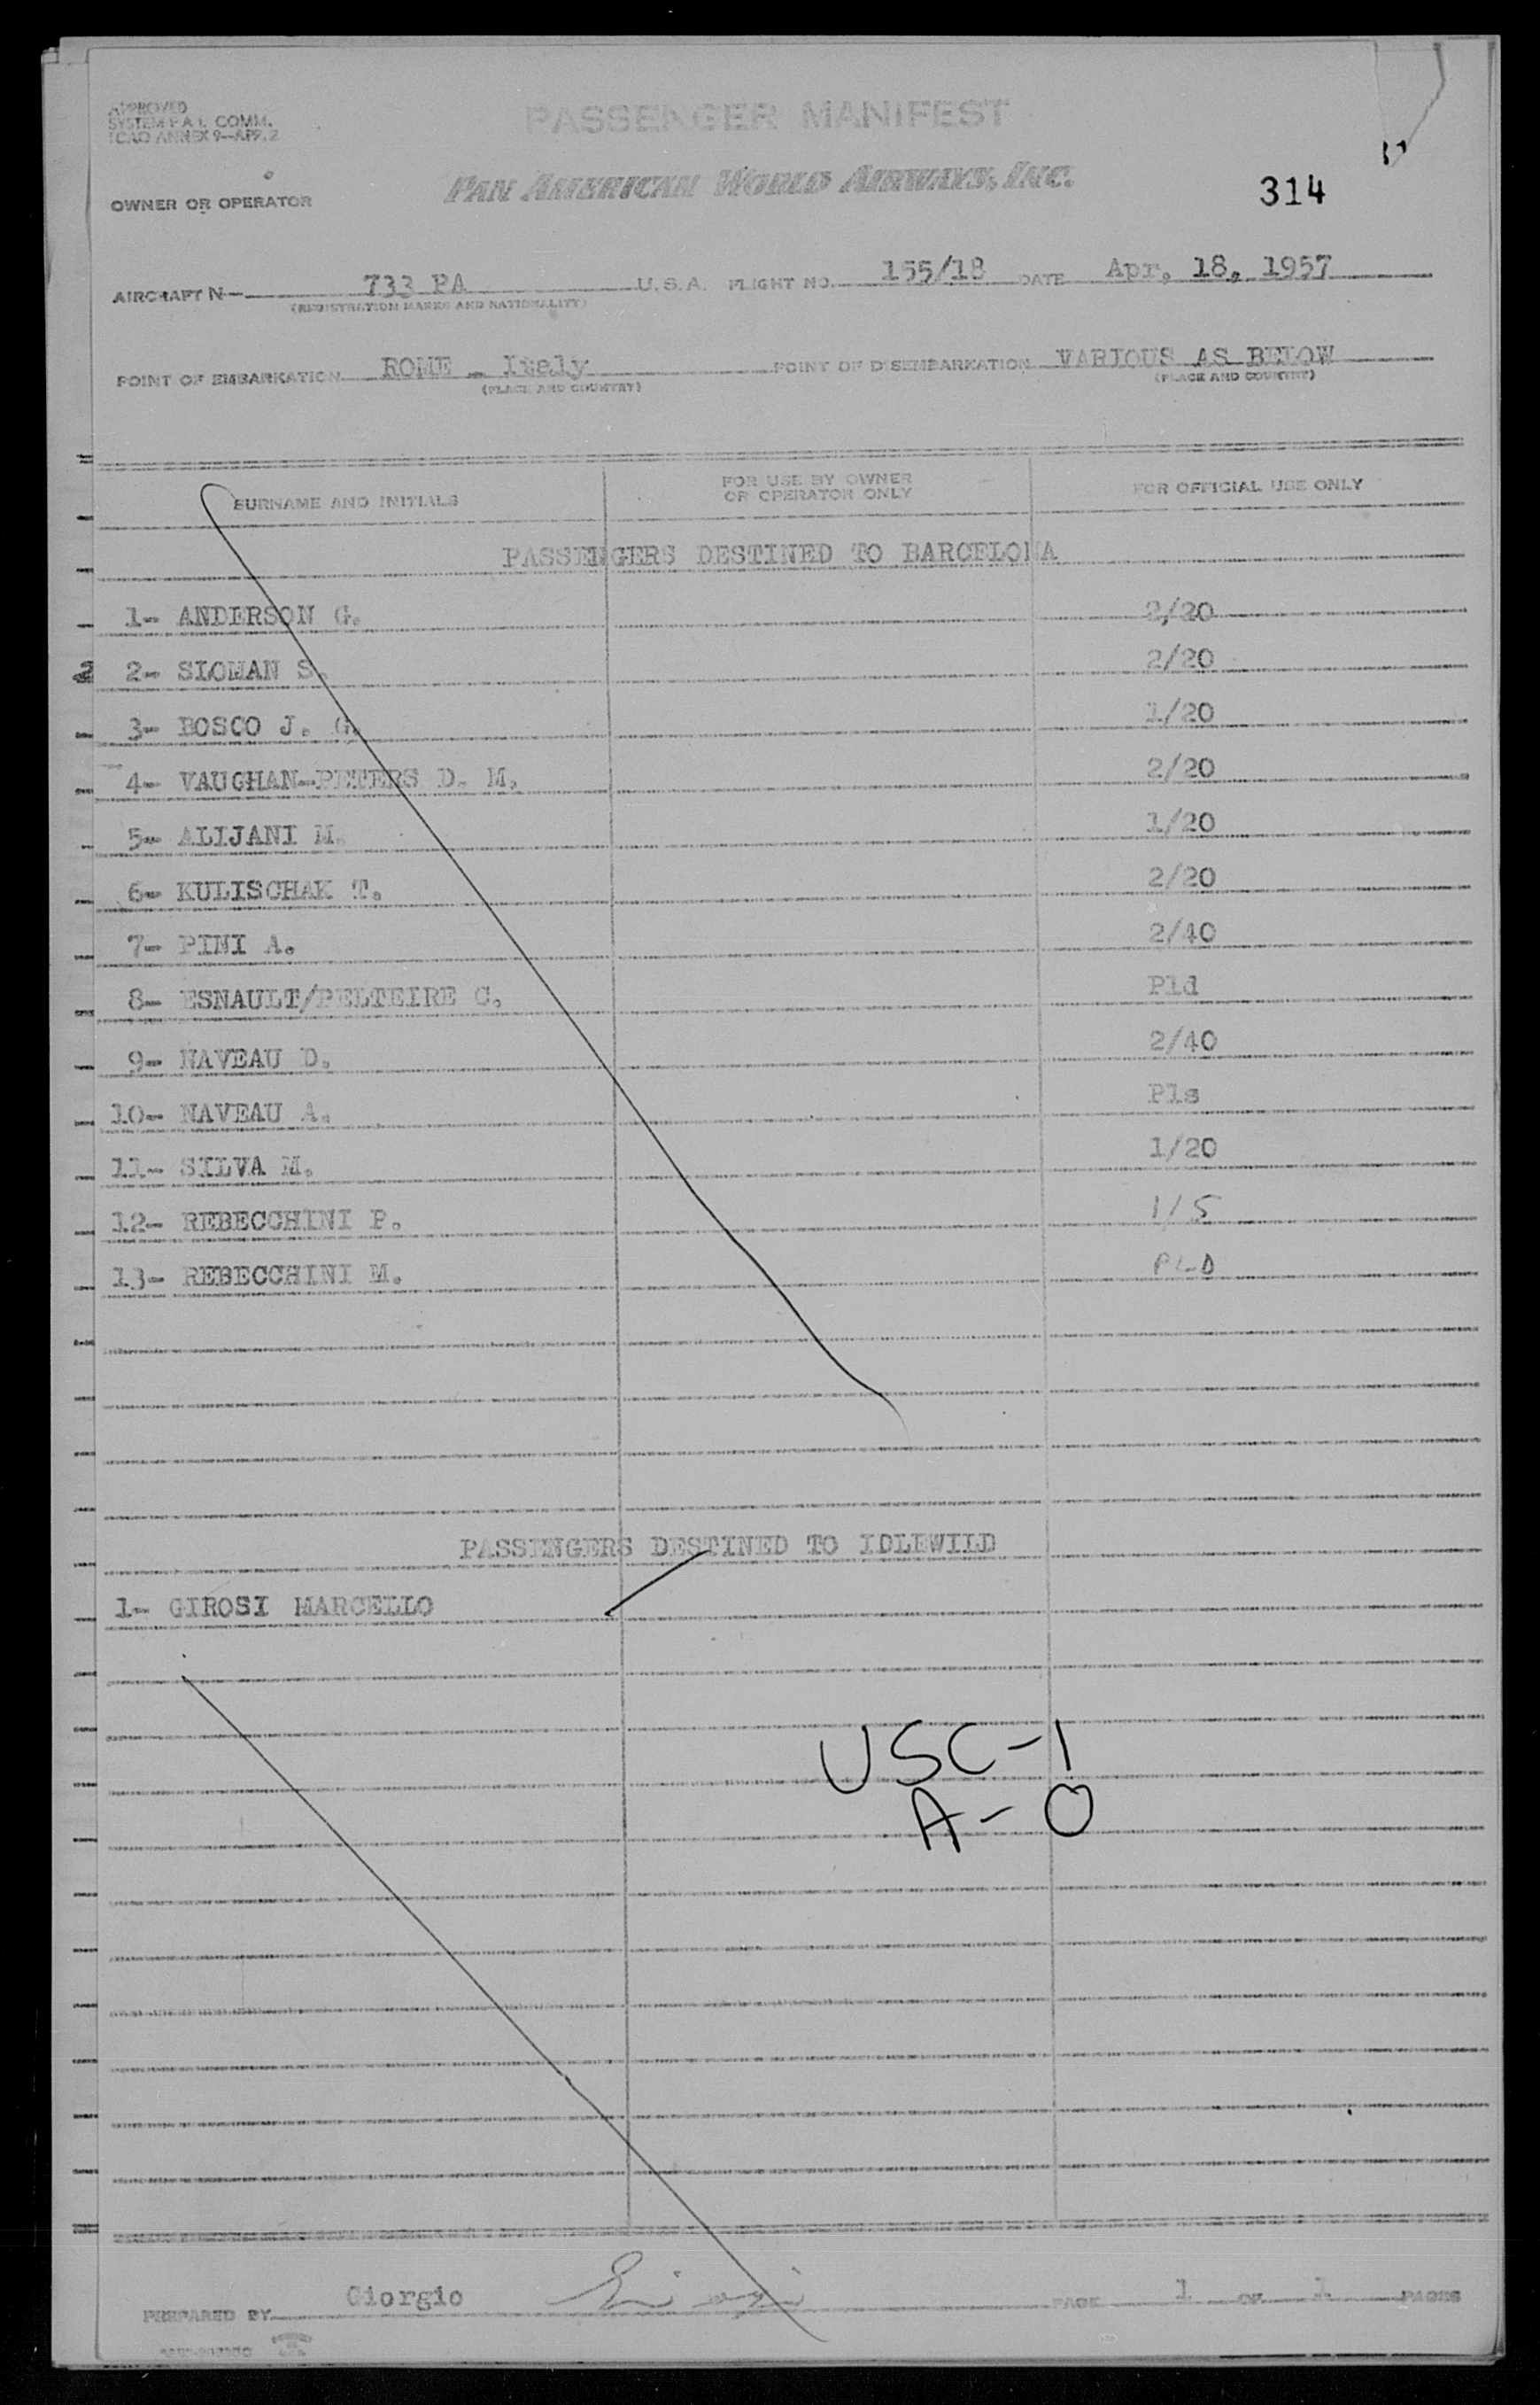 APPROVED
SYSTEM F.A.L. COMM.
ICAO ANNEX 9—APP. 2
PASSENGER MANIFEST
PAN AMERICAN WORLD AIRWAYS, INC.
314
OWNER OR OPERATOR
AIRCRAFT N— 733 PA U.S.A. FLIGHT NO. 155/18 DATE Apr, 18, 1957
(REGISTRATION MARKS AND NATIONALITY)
POINT OF EMBARKATION ROME - Italy POINT OF DISEMBARKATION VARIOUS AS BELOW
(PLACE AND COUNTRY) (PLACE AND COUNTRY)
SURNAME AND INITIALS FOR USE BY OWNER OR OPERATOR ONLY FOR OFFICIAL USE ONLY
PASSENGERS DESTINED TO BARCELONA
1- ANDERSON G. 2/20
2 2- SLOMAN S. 2/20
3- BOSCO J. G. 1/20
4- VAUGHAN-PETERS D. M. 2/20
5- ALIJANI M. 1/20
6- KULISCHAK T. 2/20
7- PINI A. 2/40
8- ESNAULT/PELTEIRE C. Pld
9- NAVEAU D. 2/40
10- NAVEAU A. Pls
11- SILVA M. 1/20
12- REBECCHINI P. 1/5
13- REBECCHINI M. PLD
PASSENGERS DESTINED TO IDLEWILD
1- GIROSI MARCELLO
USC-1
A-0
PREPARED BY Giorgio PAGE 1 OF 1 PAGES